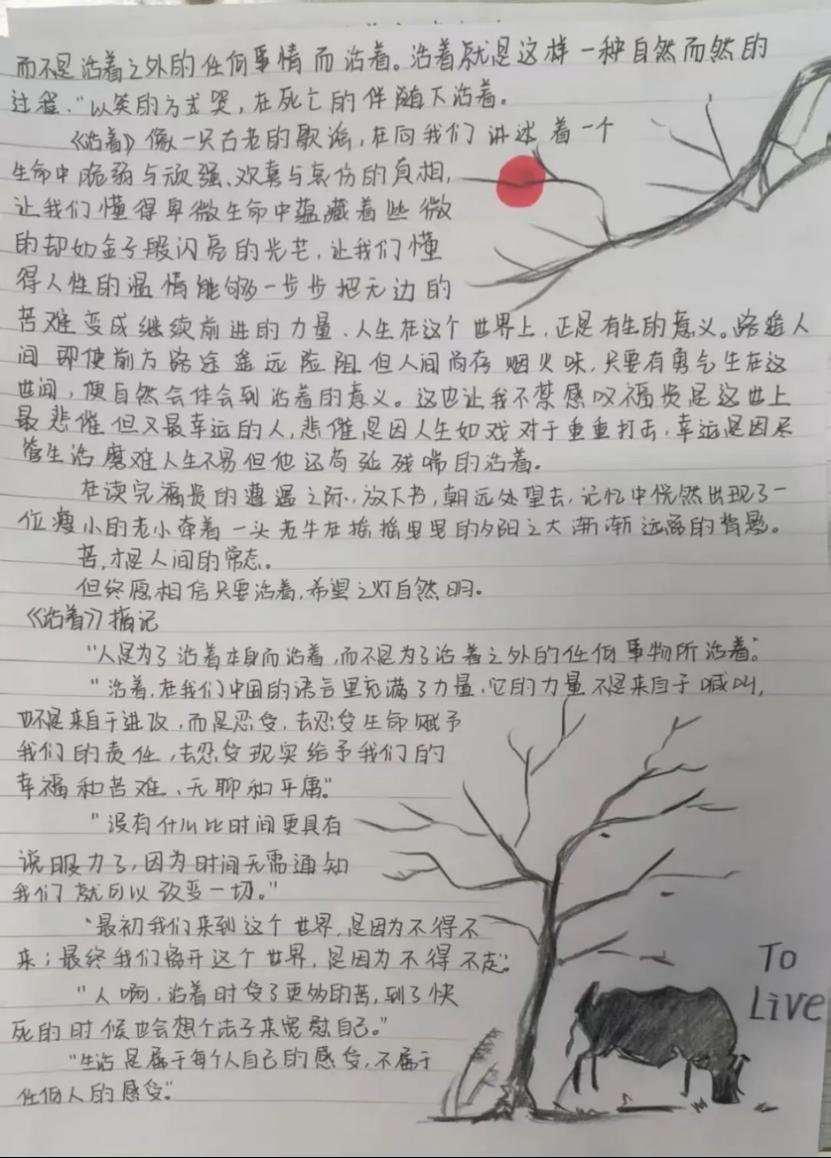 而不是活着之外的任何事情而活着。活着就是这样一种自然而然的
过程."以笑的方式哭,在死亡的伴随下活着。
《活着》像一只古老的歌谣,在向我们讲述着一个
生命中脆弱与顽强、欢喜与哀伤的真相,
让我们懂得卑微生命中蕴藏着些微
的却如金子般闪亮的光芒,让我们懂
得人性的温情能够一步步把无边的
苦难变成继续前进的力量、人生在这个世界上,正是有生的意义。路遥人
间即使前方路途遥远险阻但人间尚存烟火味,只要有勇气生在这
世间,便自然会体会到活着的意义。这也让我不禁感叹福贵是这世上
最悲催但又最幸运的人,悲催是因人生如戏对于重重打击,幸运是因尽
管生活磨难人生不易但他还苟延残喘的活着。
在读完福贵的遭遇之际,放下书,朝远处望去,记忆中恍然出现了一
位瘦小的老小牵着一头老牛在摇摇曳曳的夕阳之大渐渐远离的背影。
苦,才是人间的常态。
但终愿相信只要活着,希望之灯自然明。
《活着》摘记
"人是为了活着本身而活着,而不是为了活着之外的任何事物所活着."
"活着,在我们中国的语言里充满了力量,它的力量不是来自于喊叫,
也不是来自于进攻,而是忍受,去忍受生命赋予
我们的责任,去忍受现实给予我们的
幸福和苦难、无聊和平庸."
"没有什么比时间更具有
说服力了,因为时间无需通知
我们就可以改变一切."
"最初我们来到这个世界,是因为不得不
来;最终我们离开这个世界,是因为不得不走."
"人啊,活着时受了更多的苦,到了快
死的时候也会想个法子来宽慰自己."
"生活是属于每个人自己的感受,不属于
任何人的感受."
To
Live